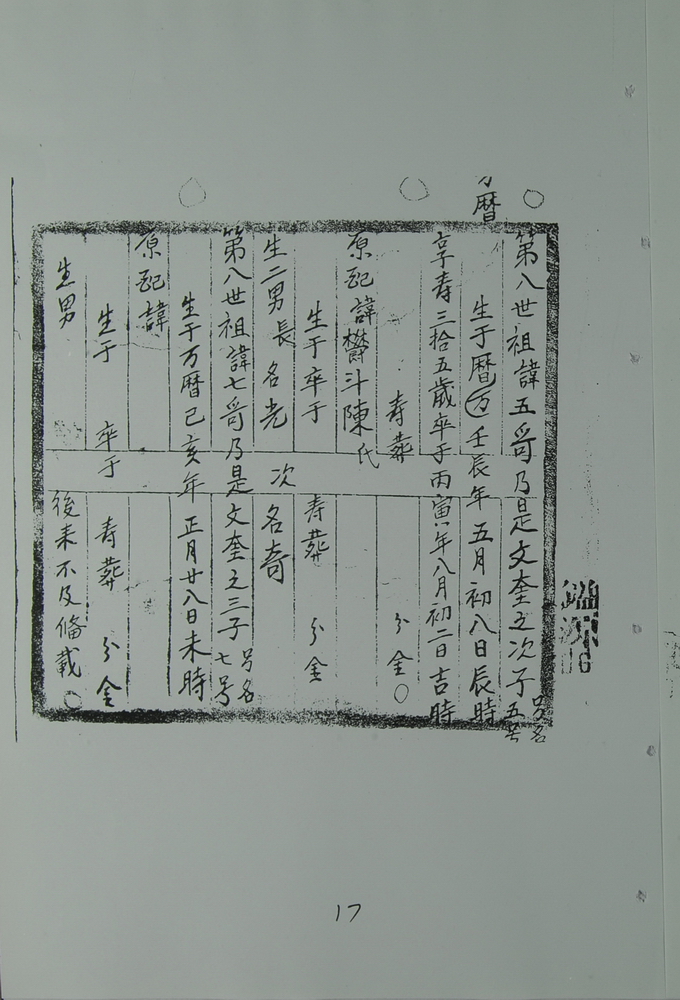 万曆
第八世祖諱五哥乃是文奎之次子五号 号名
生于曆万壬辰年五月初八日辰時
享寿三拾五歲卒于丙寅年八月初二日吉時
寿葬 分金
原配諱欝斗陳氏
生于卒于 寿葬 分金
生二男長名光 次名奇
第八世祖諱七哥乃是文奎之三子七号 号名
生于万曆己亥年正月廿八日未時
原配諱
生于 卒于 寿葬 分金
生男 後未不及俻載
17